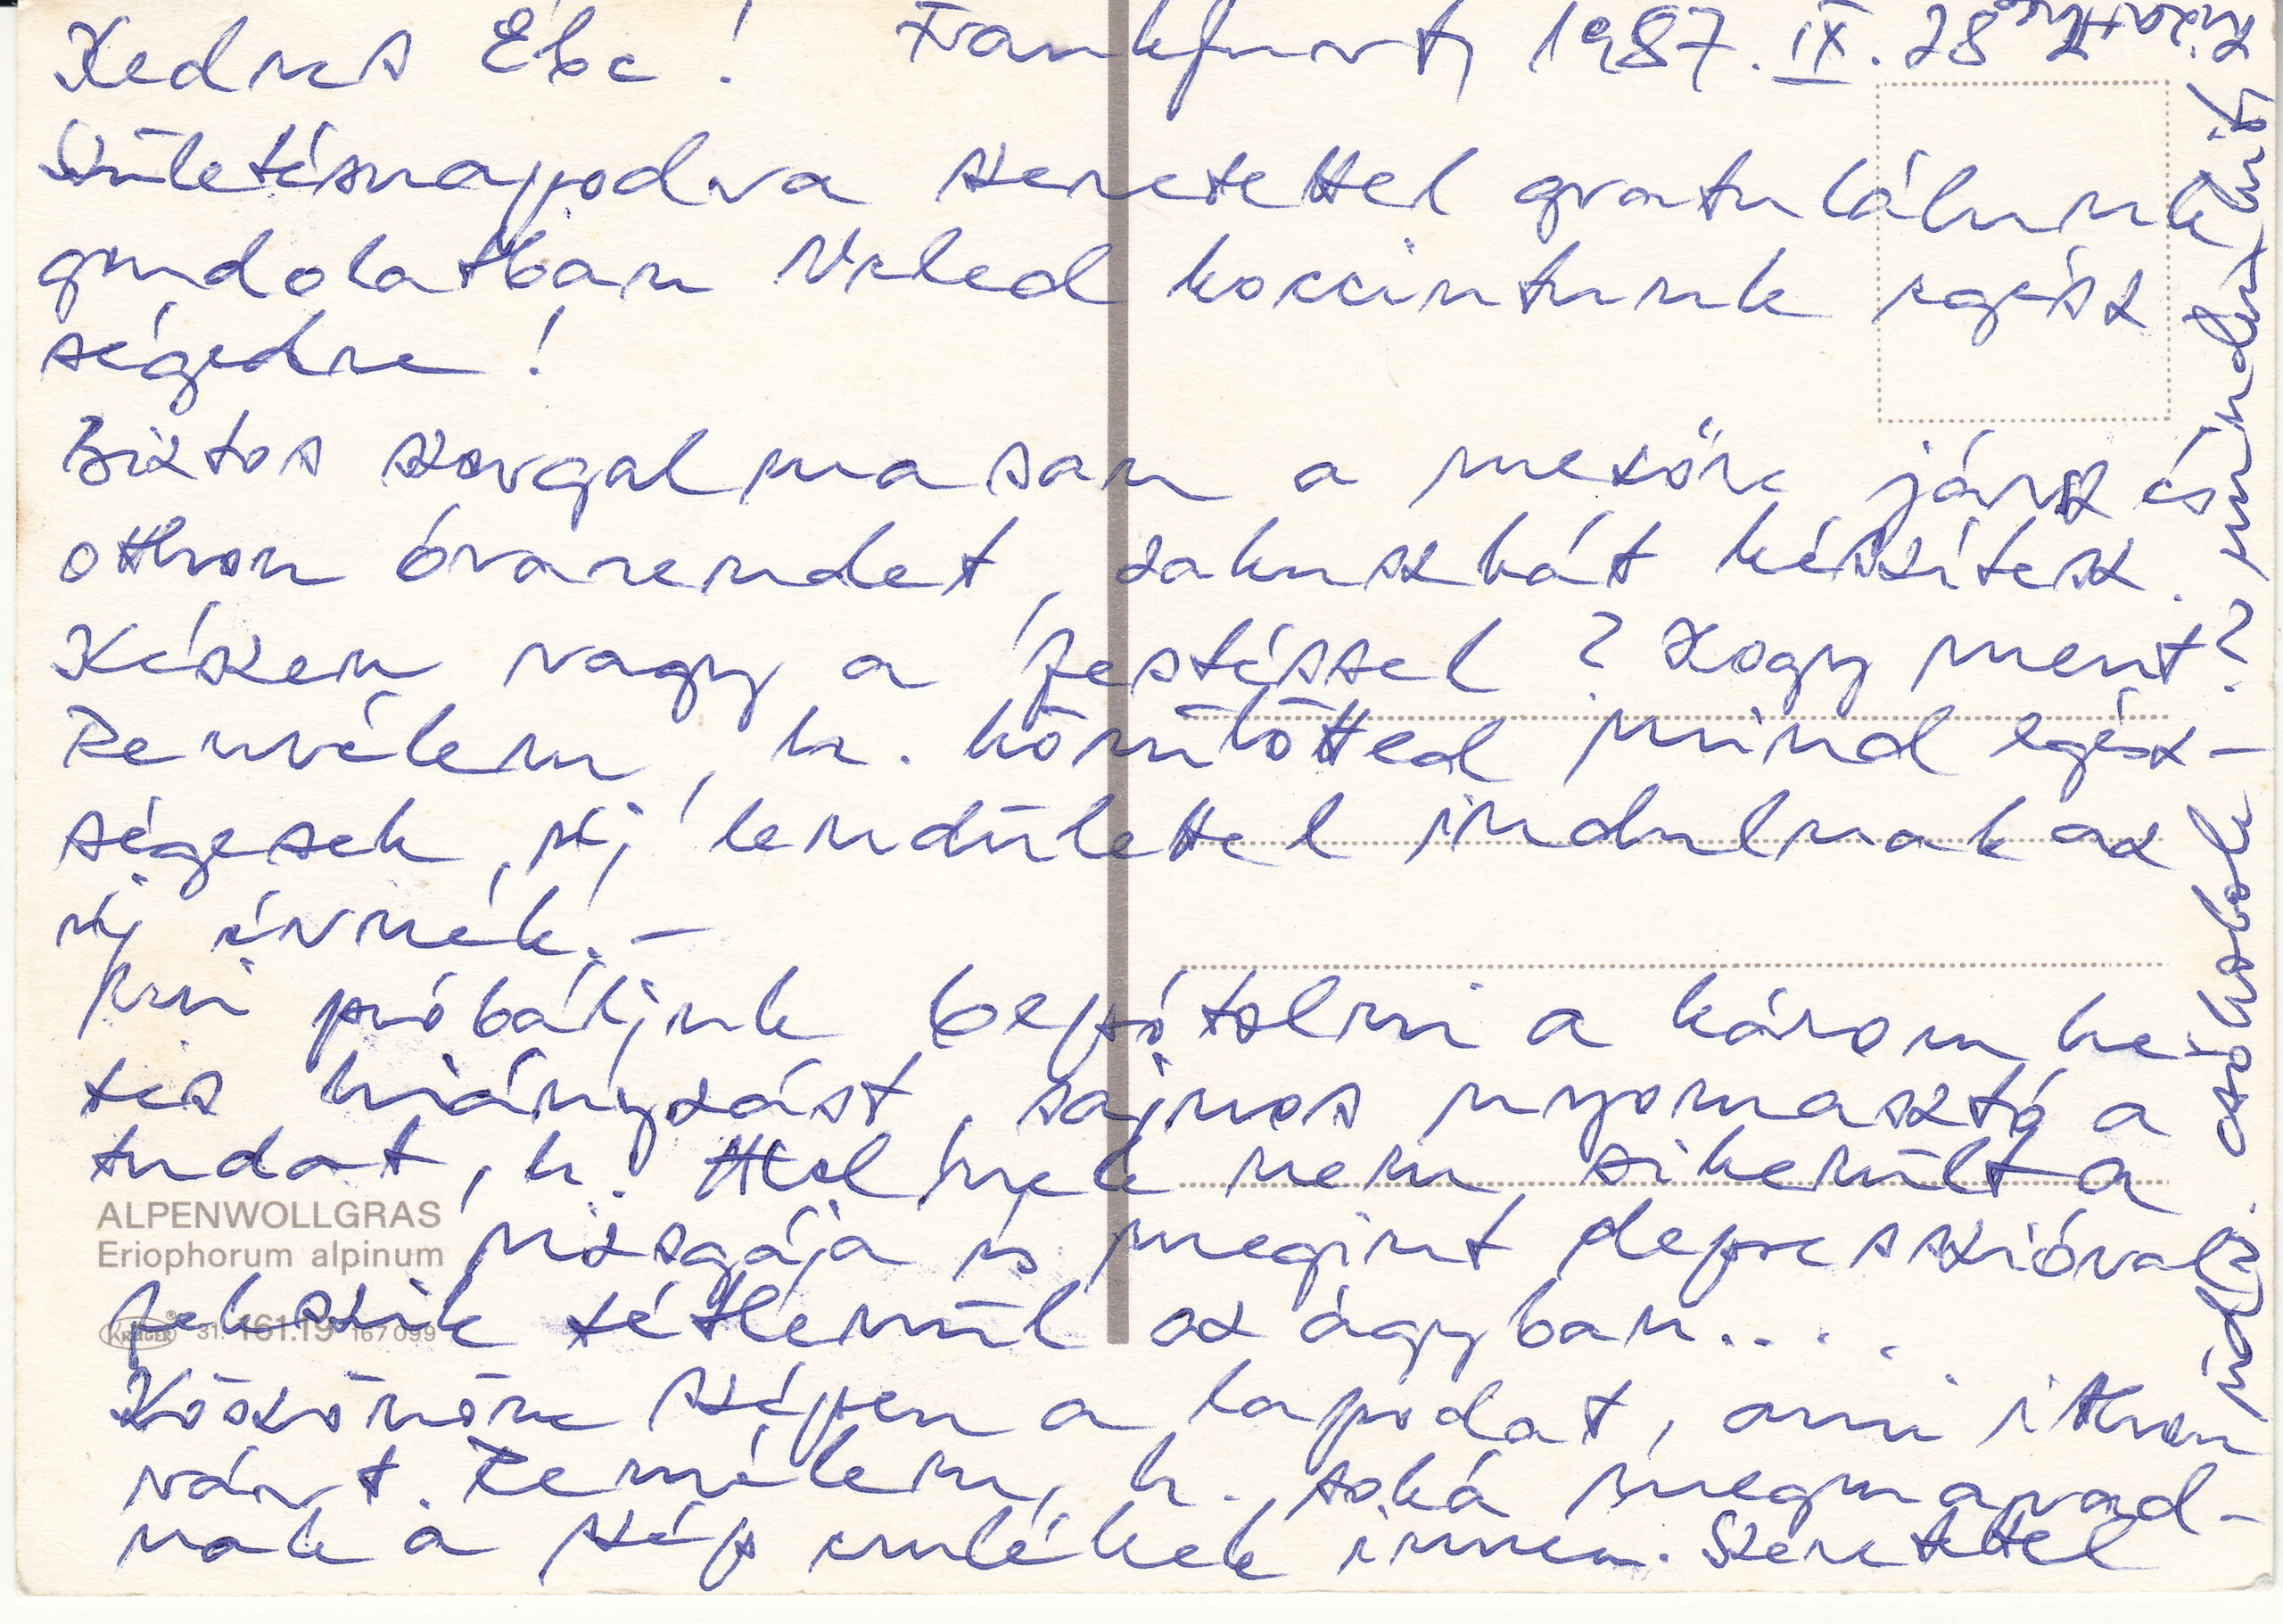 Kedves Ebe! Frankfurt, 1987. IX. 28
Születésnapodra szeretettel gratulálunk,
gondolatban Veled koccintunk egész
ségedre!
Biztos szorgalmasan a mezőre jársz és
otthon óvarendet, zakuszkát készítesz.
Készen vagy a festéssel? Hogy ment?
Remélem, h. körülötted mind egész-
ségesek, új lendülettel indulnak az
új évnek. –
Mi próbáljuk bepótolni a három he-
tes hiányzást, sajnos nyomasztó a
tudat, h. nem sikerült a
vizsgája is megint depresszióval
fekszik tétlenül az ágyban....
Köszönöm szépen a lapodat, ami itthon
várt. Remélem, h. soká megmarad-
nak a szép emlékek innen. Szeretettel
üdv. csókolok mindenkit,
ALPENWOLLGRAS
Eriophorum alpinum
Krüger 31. 161.19 167099